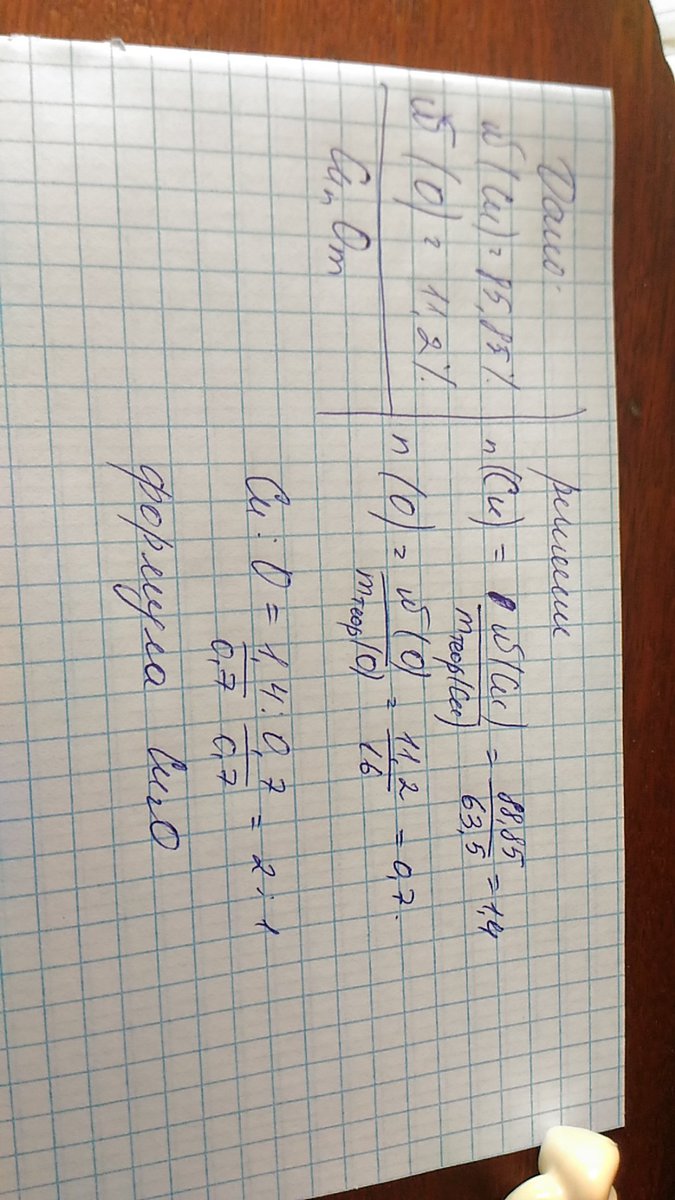 Дано:
w(Cu) = 85,85%
w(O) = 11,2%.
CunOm
решение
n(Cu) = w(Cu) / mтеор(Cu) = 88,85 / 63,5 = 1,4
n(O) = w(O) / mтеор(O) = 11,2 / 16 = 0,7.
Cu : O = 1,4 / 0,7 : 0,7 / 0,7 = 2 : 1
формула Cu2O